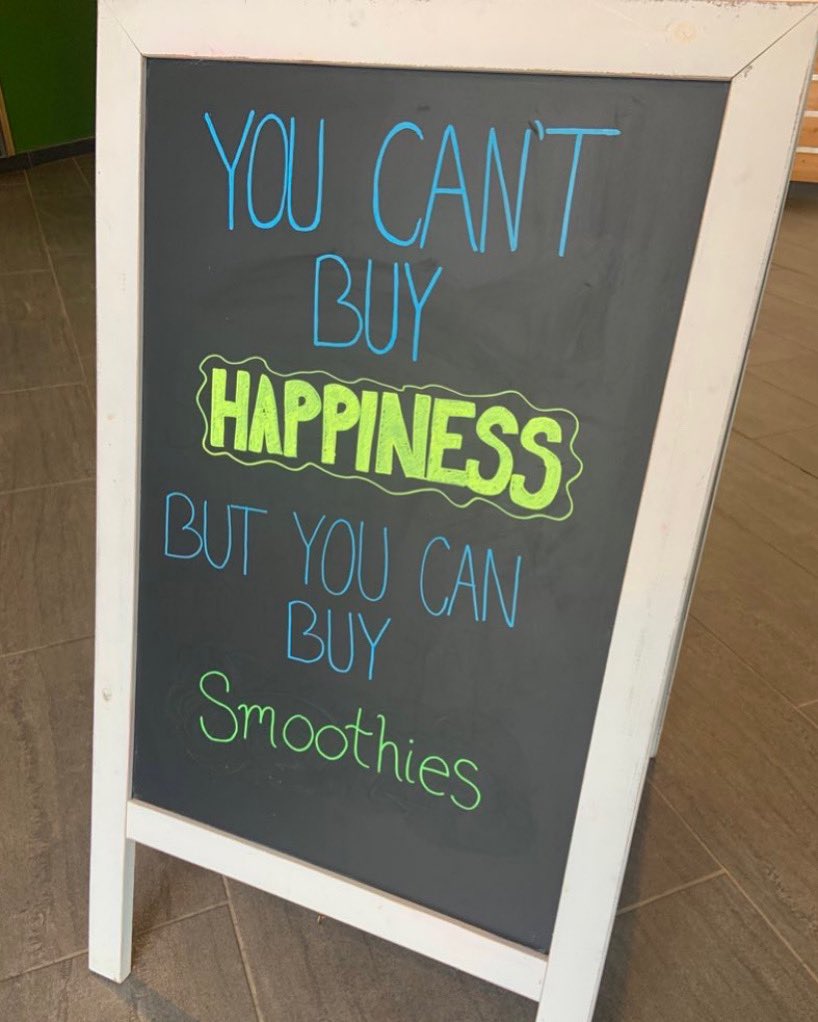 YOU CAN'T
BUY
HAPPINESS
BUT YOU CAN
BUY
Smoothies